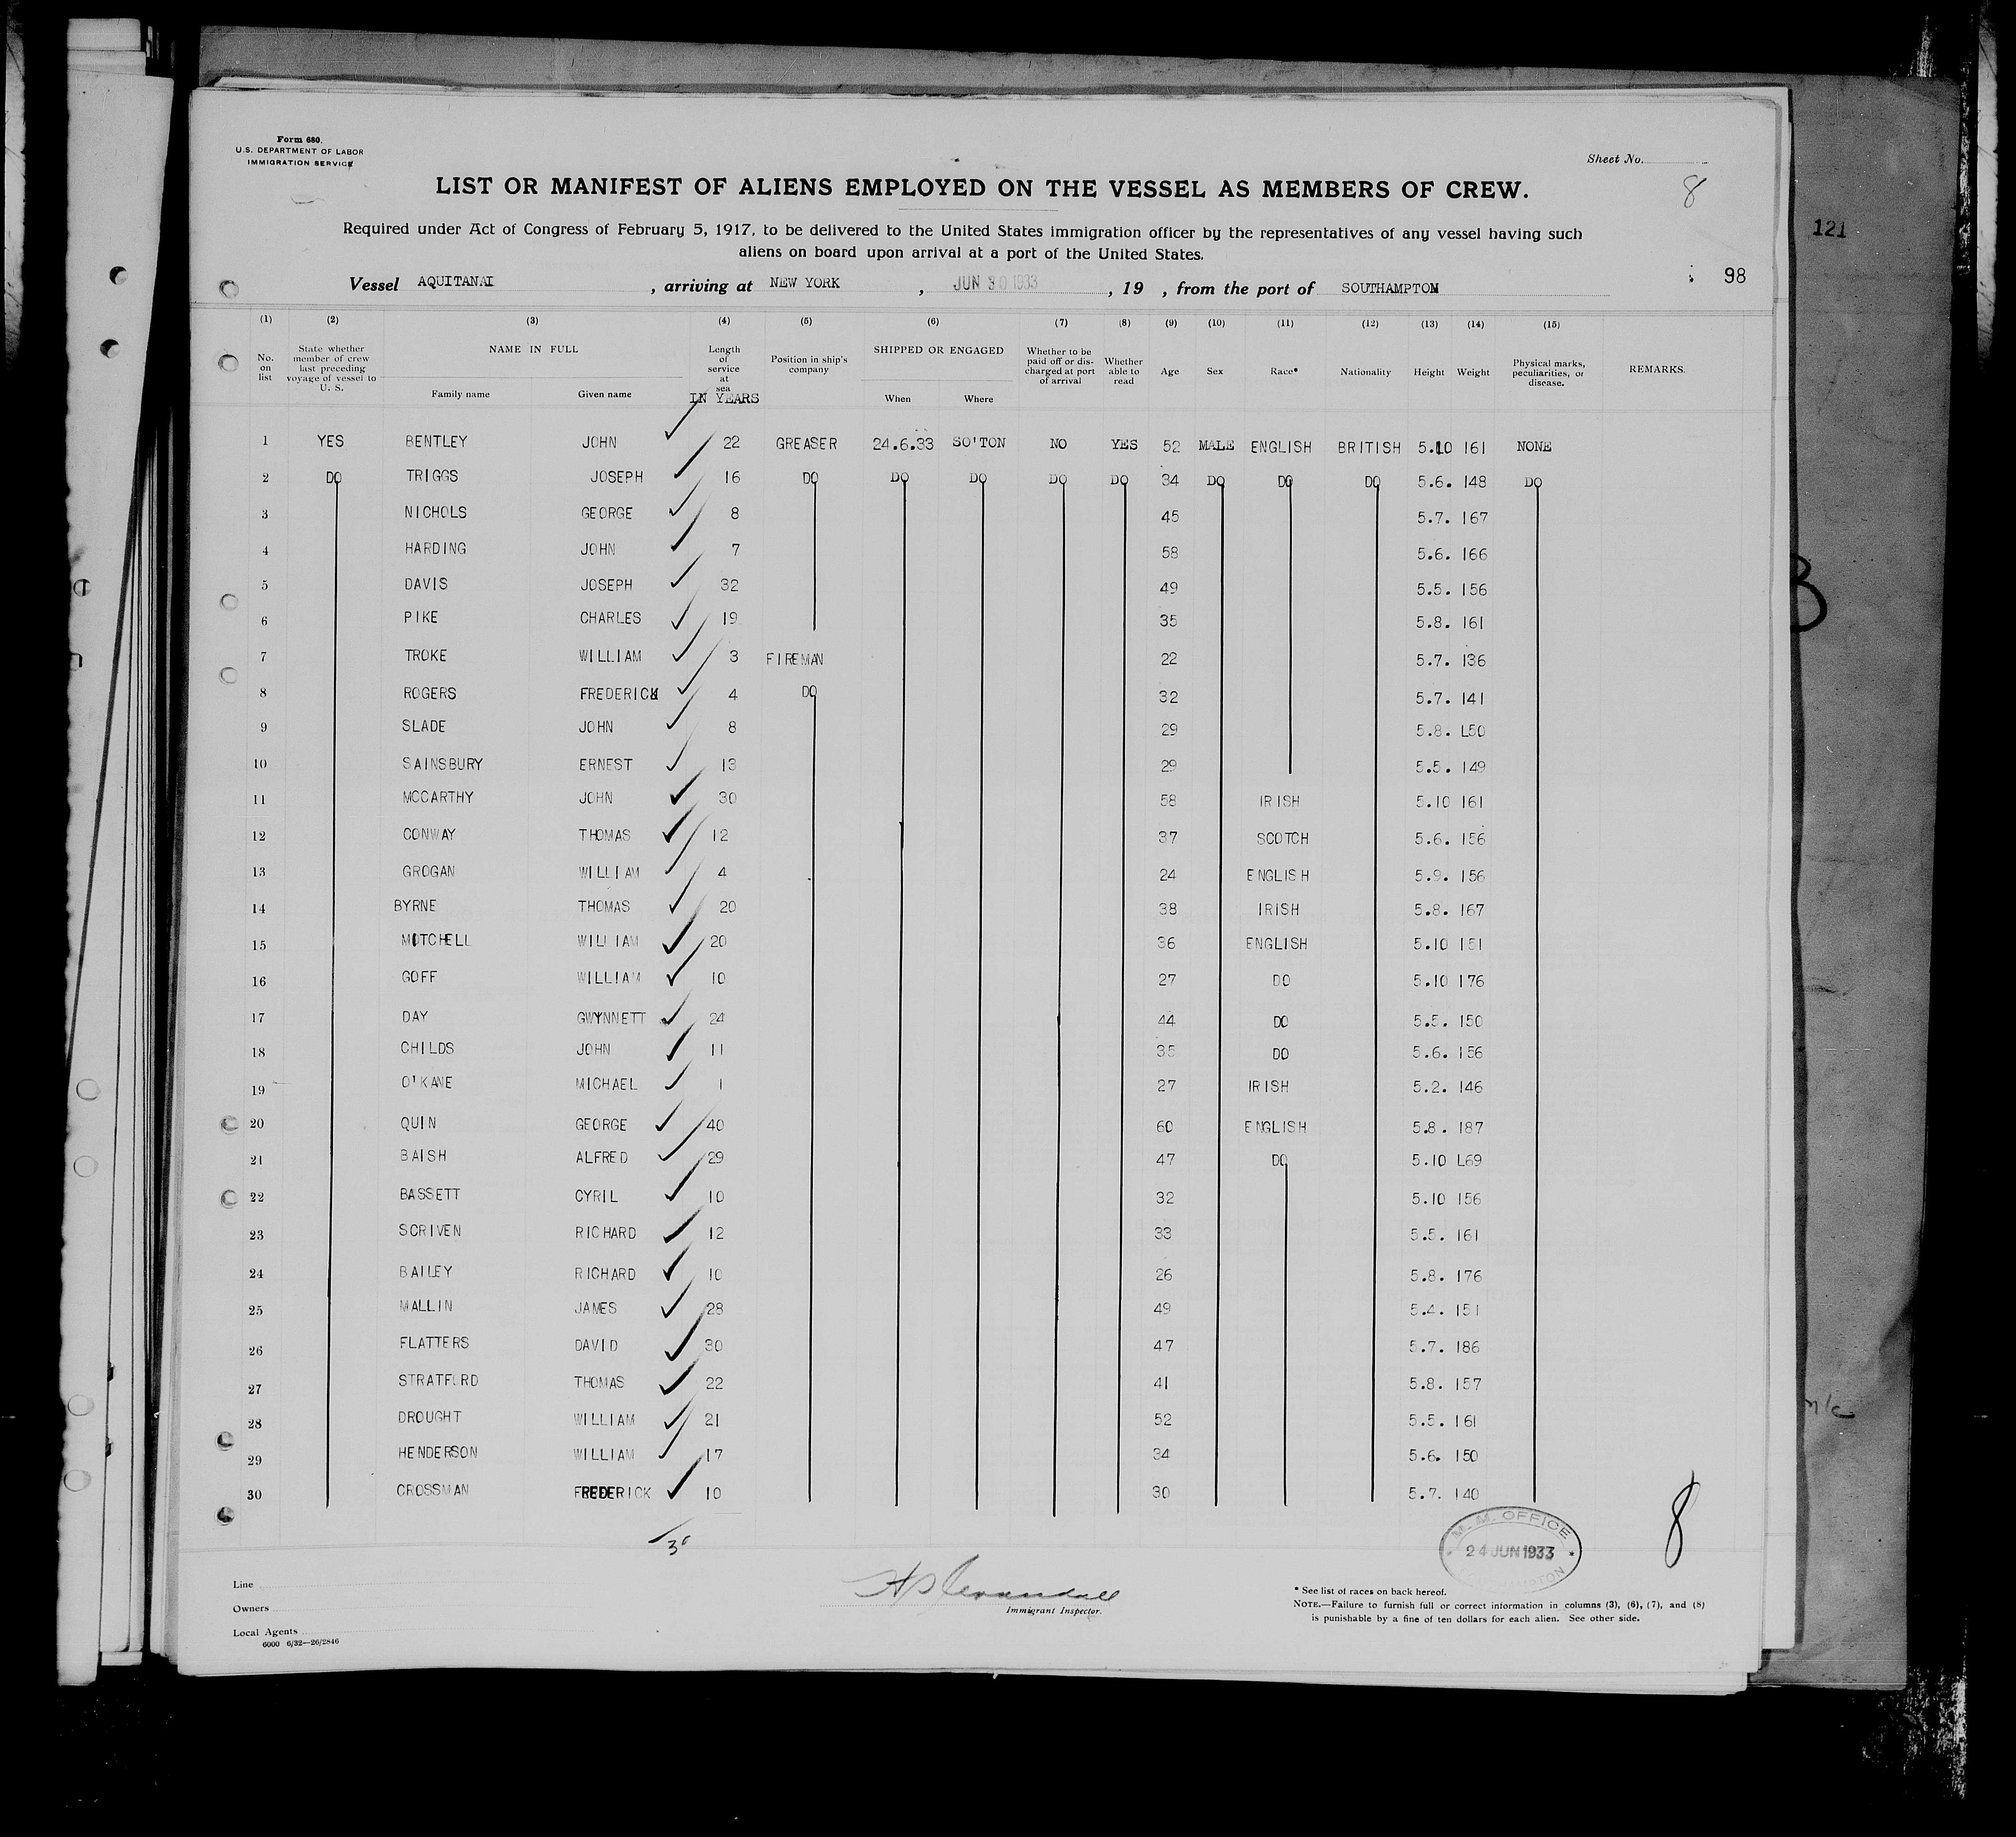 Form 680.
U.S. DEPARTMENT OF LABOR
IMMIGRATION SERVICE
Sheet No.
8
LIST OR MANIFEST OF ALIENS EMPLOYED ON THE VESSEL AS MEMBERS OF CREW.
Required under Act of Congress of February 5, 1917, to be delivered to the United States immigration officer by the representatives of any vessel having such
aliens on board upon arrival at a port of the United States.
121
Vessel AQUITANAI , arriving at NEW YORK , JUN 30 1933 , 19 , from the port of SOUTHAMPTON
98
(1) (2) (3) (4) (5) (6) (7) (8) (9) (10) (11) (12) (13) (14) (15)
No. on list State whether member of crew last preceding voyage of vessel to U. S. NAME IN FULL Family name Given name Length of service at sea IN YEARS Position in ship's company SHIPPED OR ENGAGED When Where Whether to be paid off or discharged at port of arrival Whether able to read Age Sex Race* Nationality Height Weight Physical marks, peculiarities, or disease. REMARKS.
1 YES BENTLEY JOHN 22 GREASER 24.6.33 SO'TON NO YES 52 MALE ENGLISH BRITISH 5.10 161 NONE
2 DO TRIGGS JOSEPH 16 DO DO DO DO DO 34 DO DO DO 5.6. 148 DO
3 NICHOLS GEORGE 8 45 5.7. 167
4 HARDING JOHN 7 58 5.6. 166
5 DAVIS JOSEPH 32 49 5.5. 156
6 PIKE CHARLES 19 35 5.8. 161
7 TROKE WILLIAM 3 FIREMAN 22 5.7. 136
8 ROGERS FREDERICK 4 DO 32 5.7. 141
9 SLADE JOHN 8 29 5.8. L50
10 SAINSBURY ERNEST 13 29 5.5. 149
11 MCCARTHY JOHN 30 58 IRISH 5.10 161
12 CONWAY THOMAS 12 37 SCOTCH 5.6. 156
13 GROGAN WILLIAM 4 24 ENGLISH 5.9. 156
14 BYRNE THOMAS 20 38 IRISH 5.8. 167
15 MOTCHELL WILLIAM 20 36 ENGLISH 5.10 151
16 GOFF WILLIAM 10 27 DO 5.10 176
17 DAY GWYNNETT 24 44 DO 5.5. 150
18 CHILDS JOHN 11 35 DO 5.6. 156
19 O'KANE MICHAEL 1 27 IRISH 5.2. 146
20 QUIN GEORGE 40 60 ENGLISH 5.8. 187
21 BAISH ALFRED 29 47 DO 5.10 L69
22 BASSETT CYRIL 10 32 5.10 156
23 SCRIVEN RICHARD 12 33 5.5. 161
24 BAILEY RICHARD 10 26 5.8. 176
25 MALLIN JAMES 28 49 5.4. 151
26 FLATTERS DAVID 30 47 5.7. 186
27 STRATFORD THOMAS 22 41 5.8. 157
28 DROUGHT WILLIAM 21 52 5.5. 161
29 HENDERSON WILLIAM 17 34 5.6. 150
30 CROSSMAN FREDERICK 10 30 5.7. 140
30
8
M. M. OFFICE
24 JUN 1933
SOUTHAMPTON
Line
Owners
Local Agents
6000 6/32—26/2846
Immigrant Inspector.
* See list of races on back hereof.
NOTE.—Failure to furnish full or correct information in columns (3), (6), (7), and (8)
is punishable by a fine of ten dollars for each alien. See other side.